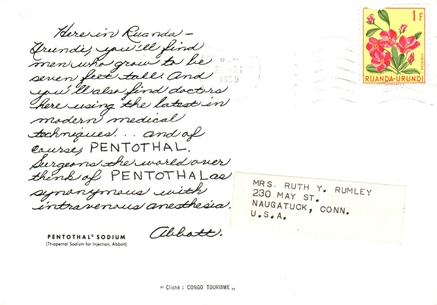 Here in Ruanda-
Urundi, you'll find
men who grow to be
seven feet tall. And
you'll also find doctors
here using the latest in
modern medical
techniques... and of
course, PENTOTHAL.
Surgeons the world over
think of PENTOTHAL as
synonymous with
intravenous anesthesia.
Abbott.
PENTOTHAL® SODIUM
(Thiopental Sodium for Injection, Abbott)
1959
1F
RUANDA-URUNDI
MRS. RUTH Y. RUMLEY
230 MAY ST.
NAUGATUCK, CONN.
U.S.A.
"Cliché : CONGO TOURISME "